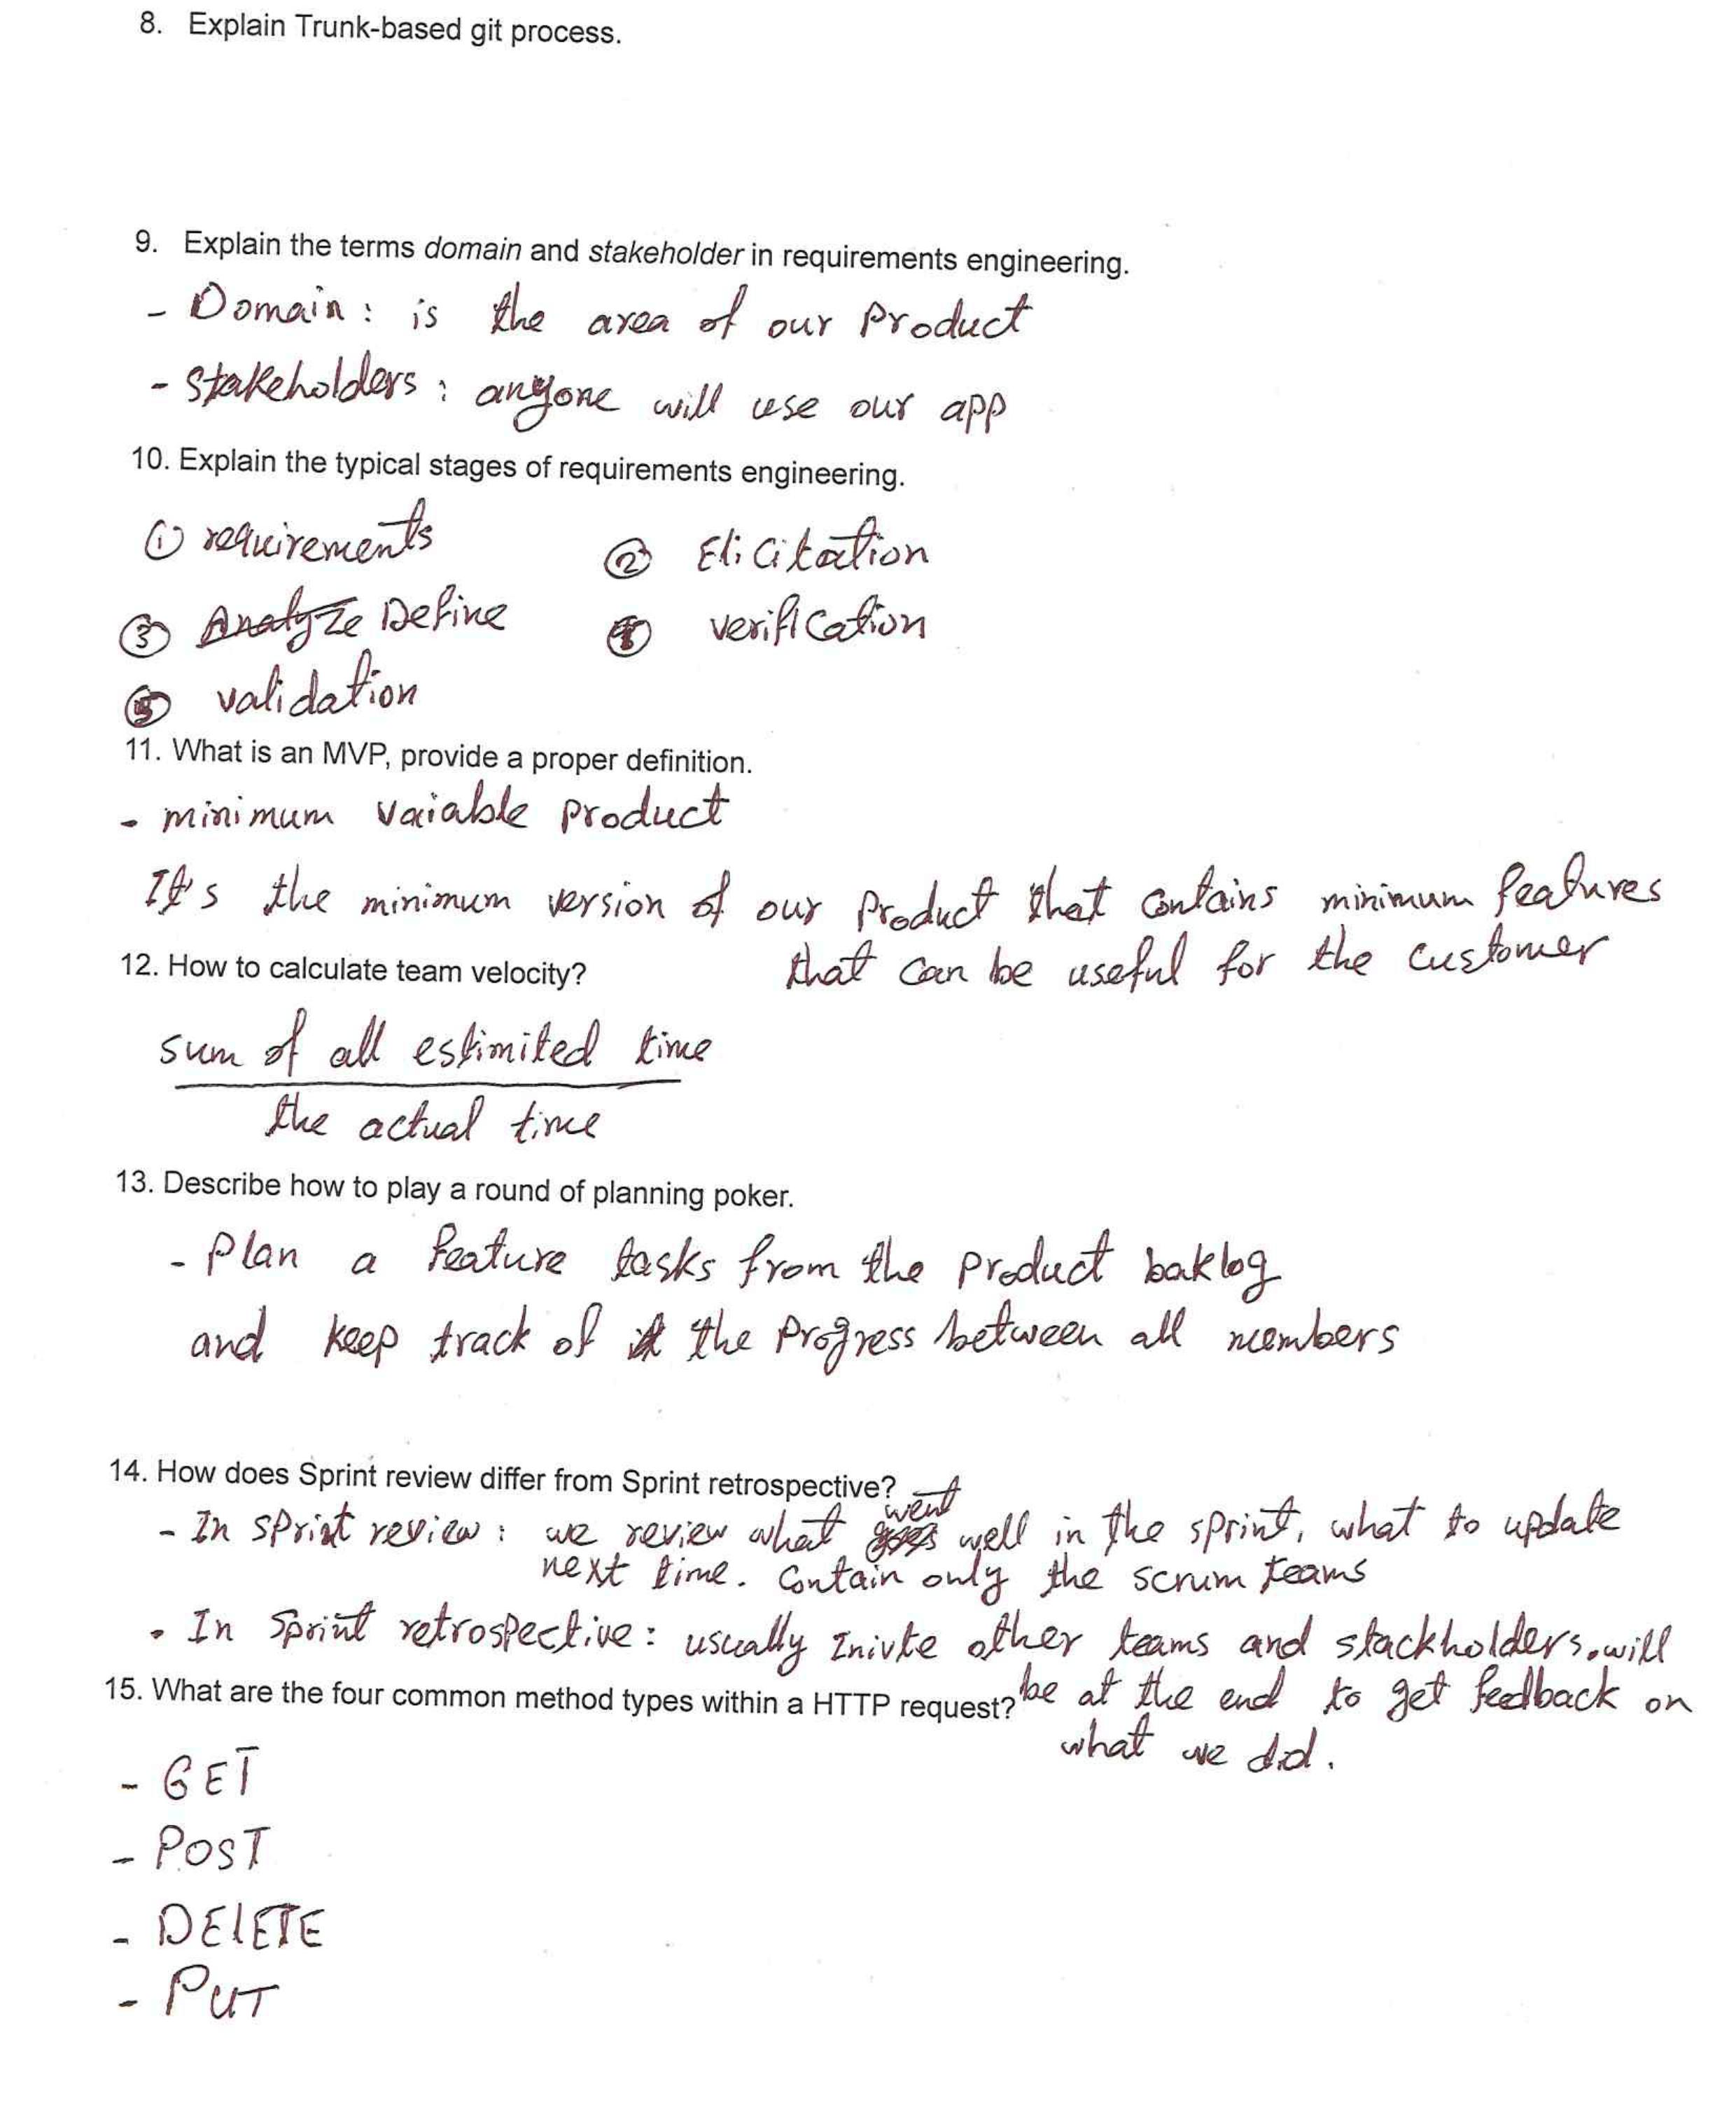 8. Explain Trunk-based git process.
9. Explain the terms domain and stakeholder in requirements engineering.
- Domain : is the area of our Product
- Stakeholders : anyone will use our app
10. Explain the typical stages of requirements engineering.
① requirements ② Elicitation
③ Analyze Define ④ verification
⑤ validation
11. What is an MVP, provide a proper definition.
- minimum vaiable product
It's the minimum version of our Product that contains minimum features
that can be useful for the customer
12. How to calculate team velocity?
sum of all estimited time
the actual time
13. Describe how to play a round of planning poker.
- Plan a feature tasks from the product baklog
and keep track of the Progress between all members
14. How does Sprint review differ from Sprint retrospective?
- In sprint review : we review what went well in the sprint, what to update
next time. Contain only the scrum teams
• In Sprint retrospective : usually Inivte other teams and stackholders. will
be at the end to get feedback on
what we did.
15. What are the four common method types within a HTTP request?
- GET
- POST
- DELETE
- PUT